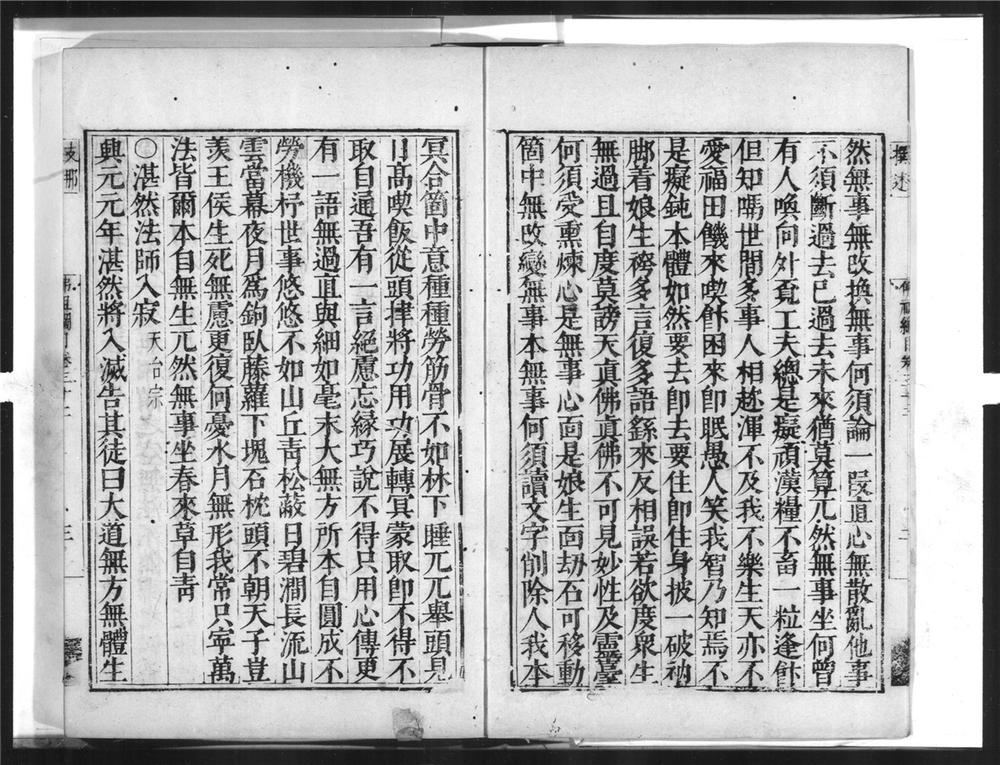 撰述
佛祖綱目卷三十二
二
然無事無改換無事何須論一叚直心無散亂他事
不須斷過去已過去未來猶莫算兀然無事坐何曾
有人喚向外覔工夫總是癡頑漢糧不畜一粒逢飰
但知嗎世間多事人相趂渾不及我不樂生天亦不
愛福田饑來喫飰困來即眠愚人笑我智乃知焉不
是癡鈍本體如然要去即去要住即住身披一破衲
脚着娘生袴多言復多語繇來反相誤若欲度衆生
無過且自度莫謗天眞佛眞佛不可見妙性及靈臺
何須受熏煉心是無事心面是娘生面劫石可移動
箇中無改變無事本無事何須讀文字削除人我本
冥合箇中意種種勞筋骨不如林下睡兀兀舉頭見
日高喫飯從頭捋將功用功展轉冥蒙取即不得不
取自通吾有一言絕慮忘緣巧說不得只用心傳更
有一語無過直與細如毫末大無方所本自圓成不
勞機杼世事悠悠不如山丘靑松蔽日碧澗長流山
雲當幕夜月爲鉤臥藤蘿下塊石枕頭不朝天子豈
羨王侯生死無慮更復何憂水月無形我常只寧萬
法皆爾本自無生兀然無事坐春來草自靑
○湛然法師入寂 天台宗
興元元年湛然將入滅告其徒曰大道無方無體生
支那
佛祖綱目卷三十二
三